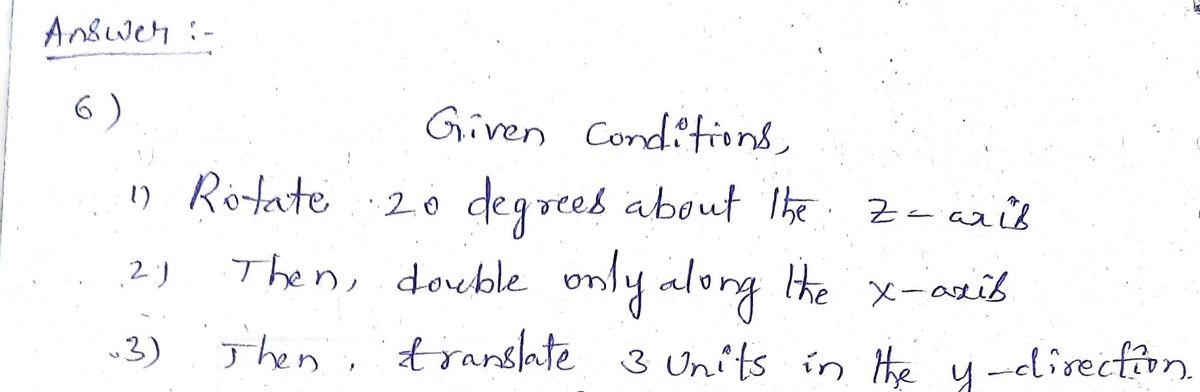 Answer :-
6)
Given Conditions,
1) Rotate 20 degrees about the z-axis
2) Then, double only along the x-axis
3) Then, translate 3 Units in the y-direction.